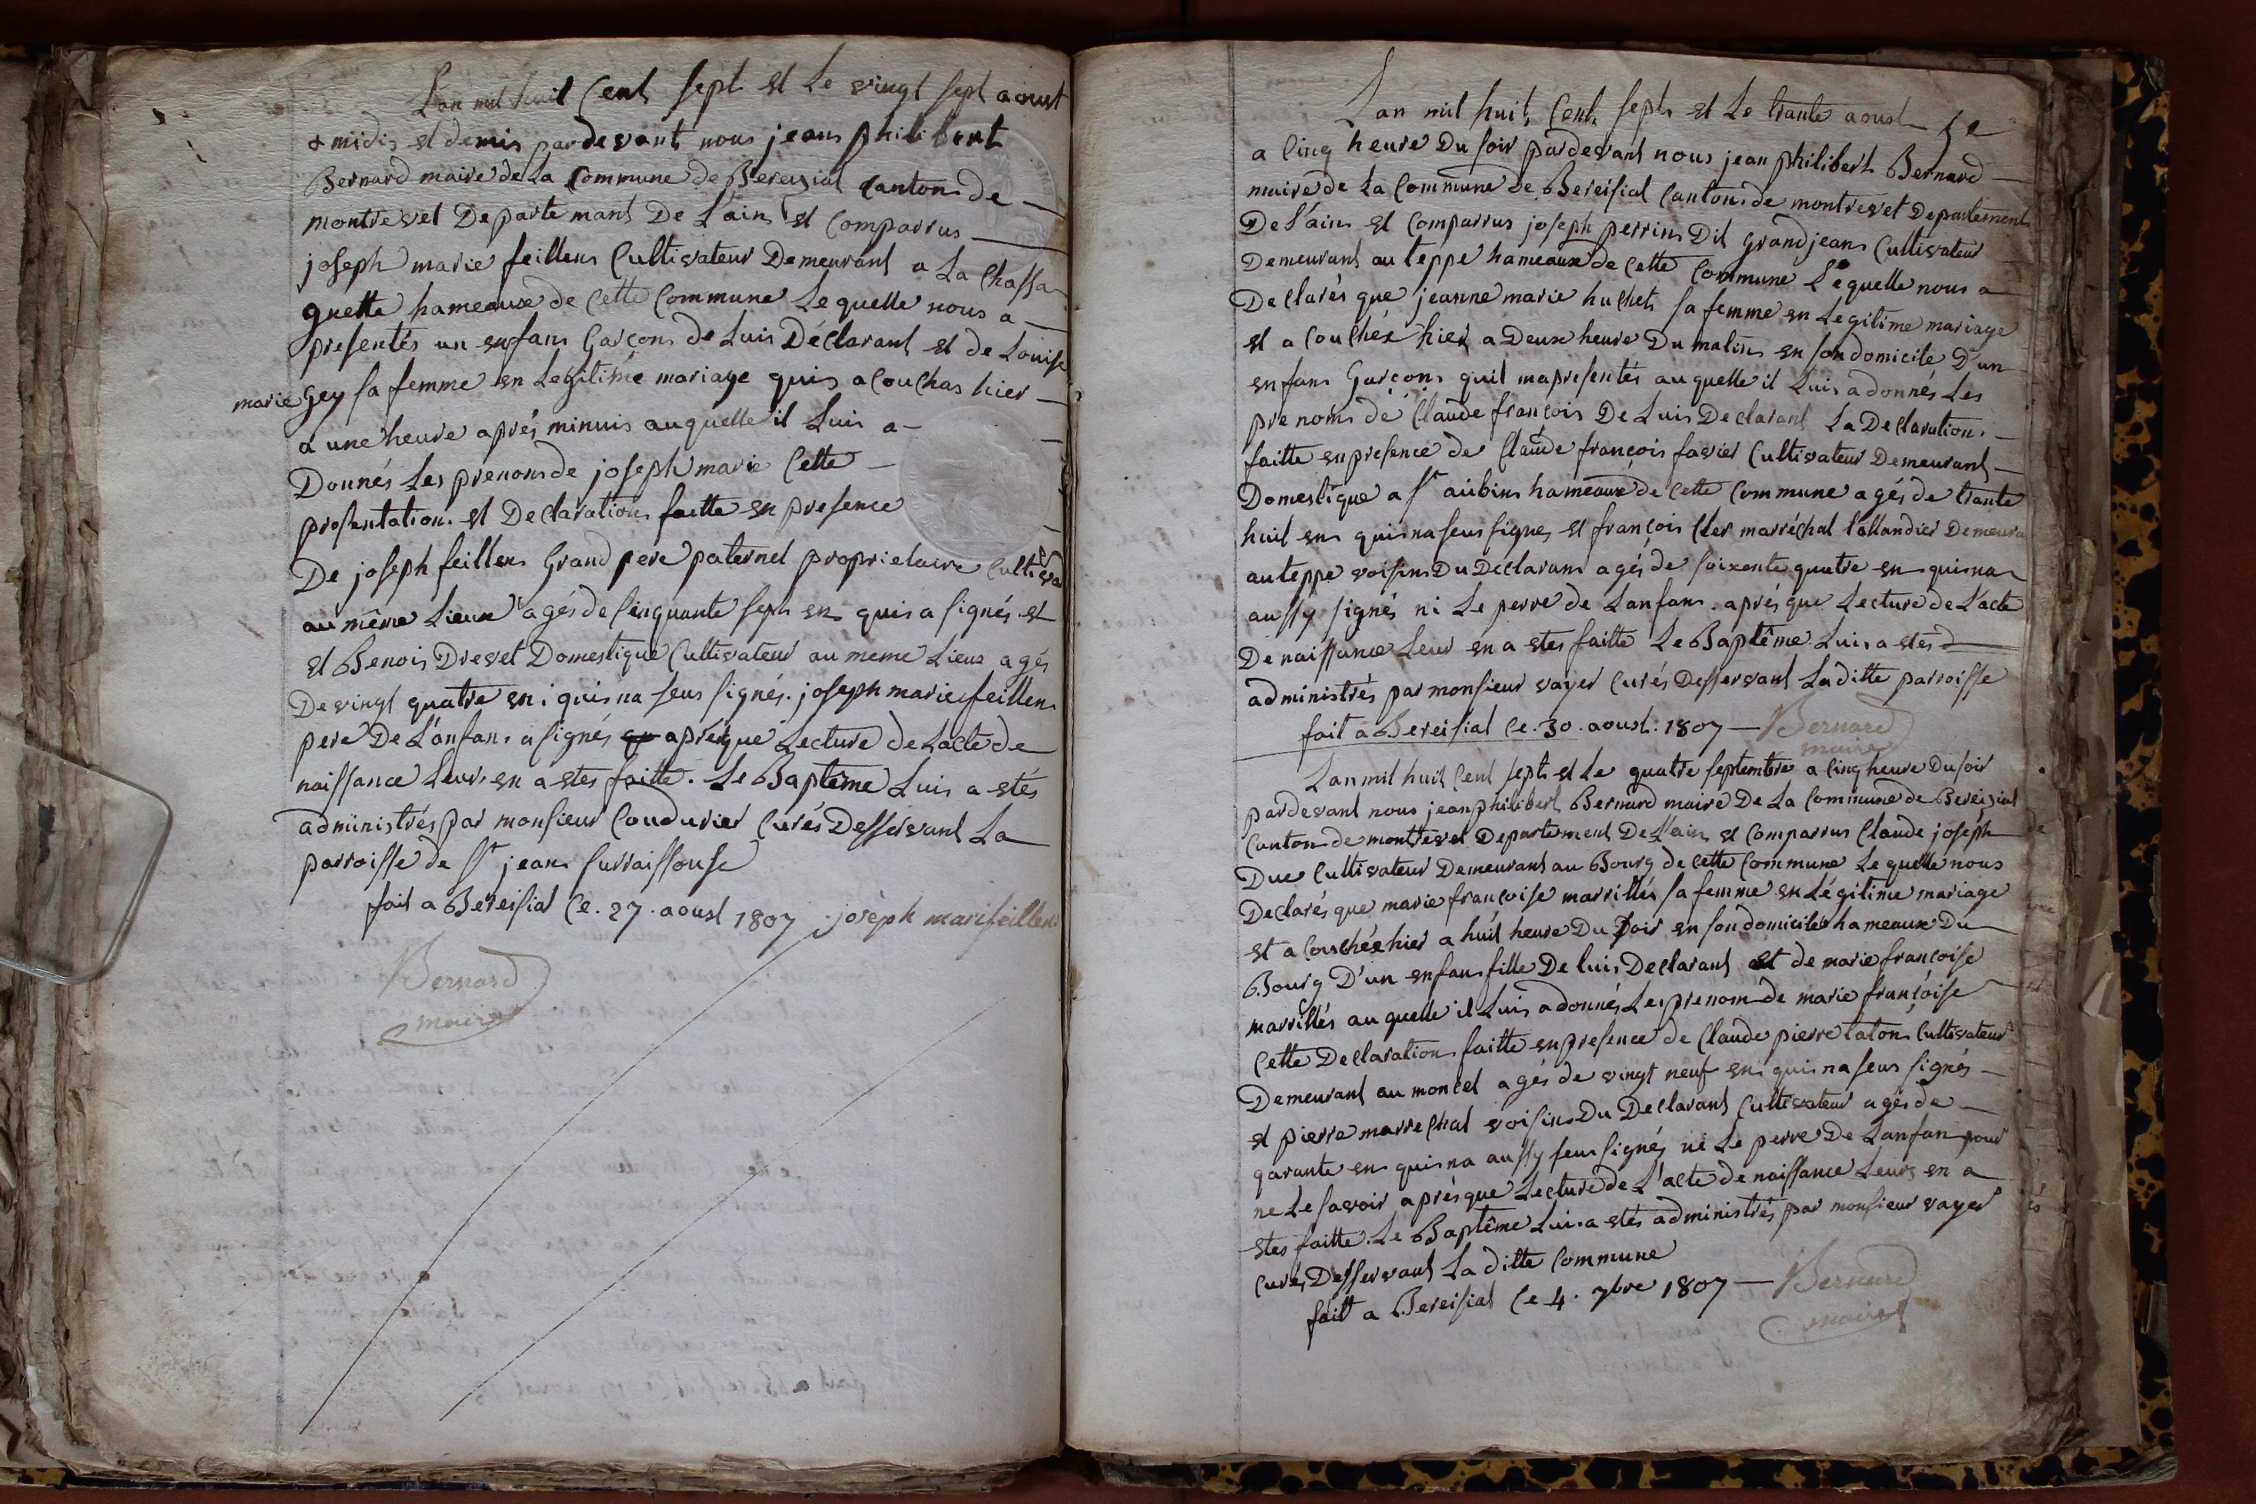 Lan mil huit Cent sept et Le vingt sept aoust
a midis et demis pardevant nous jean philibert
Bernard maire de La Commune de Bereiziat Canton de
montrevel Departemant De L'ain et Comparrus
joseph marie feillens Cultivateur Demeurant a La Chassa
gnette hameaux de Cette Commune Le quelle nous a
presentés un enfans Garçons de Luis Déclarant et de Louise
marie Gey sa femme en Legitime mariage quis a Couchas hier
a une heure aprés minuis au quelle il Luis a
Donnés Les prenoms de joseph marie Cette
presentation et Declaration faitte en presence
De joseph feillens Grand pere paternel proprietaire Cultiva
au même Lieux agés de Cinquante sept en quis a signés et
et Benois Drevet Domestique Cultivateur au meme Lieux agés
De vingt quatre en quis na seus signés. joseph marie feillens
pere De L'anfans a signés aprés que Lecture de Lacte de
naissance Leurs en a etes faitte. Le Baptême Luis a etés
administrés par monsieur Coudurier Curés Desservant La
parroisse de St jean Surraissouse
fait a Bereisiat Ce. 27. aoust 1807 joseph marie feillens
Bernard
maire
Lan mil huit Cent sept et Le trante aoust
a Cinq heure Du soir pardevant nous jean philibert Bernard
maire de La Commune de Bereisiat Canton de montrevet Departement
De L'ain et Comparrus joseph perrin Dit Grandjean Cultivateur
Demeurant au teppe hameaux de Cette Commune Lequelle nous a
Declarés que jeanne marie huchet sa femme en Legitime mariage
et a Couchée hier a Deux heure Du matin en son domicile D'un
enfans Garçons quil ma presentés au quelle il Luis a donnés Les
prenoms de Claude françois De Luis Declarant La Declaration
faitte en presence de Claude françois favier Cultivateur Demeurant
Domestique a St aubin hameaux de Cette Commune agés de trante
huit en quis na seus signes et françois Cler marréchal tallandier Demeura
au teppe voisin Du Declarans agés de soixente quatre en quis na
aussy signés ni Le perre de Lanfans. aprés que Lecture de L'acte
De naissance Leur en a etes faitte Le Baptême Luis a etes
administrés par monsieur vayer Curés Desservant Laditte parroisse
fait a Bereisiat Ce. 30. aoust. 1807 — Bernard
maire
Lan mil huit Cent sept et Le quatre septembre a Cinq heure Du soir
pardevant nous jean philibert Bernard maire De La Commune de Bereiziat
Canton de montrevel Departement De L'ain et Comparrus Claude joseph
Duc Cultivateur Demeurant au Bourg de Cette Commune Lequelle nous
Declarés que marie françoise marrillés sa femme en Légitime mariage
et a Couchée hier a huit heure Du soir en son domicile hameaux Du
Bourg D'un enfans fille De luis Declarant et de marie françoise
marrillés au quelle il Luis a donnés Les prenom de marie françoise
Cette Declaration faitte en presence de Claude pierre talon Cultivateur
Demeurant au moncel agés de vingt neuf en quis na seus signés
et pierre marrechal voisin Du Declarant Cultivateur agés de
qarante en quis na aussy seus signés ni Le perre De Lanfan pour
ne Le savoir aprés que Lecture de L'acte de naissance Leurs en a
etes faitte. Le Baptême Luis a etés administrés par monsieur vayer
Curés Desservant La ditte Commune
fait a Bereisiat Ce 4. 7bre 1807 — Bernard
maire